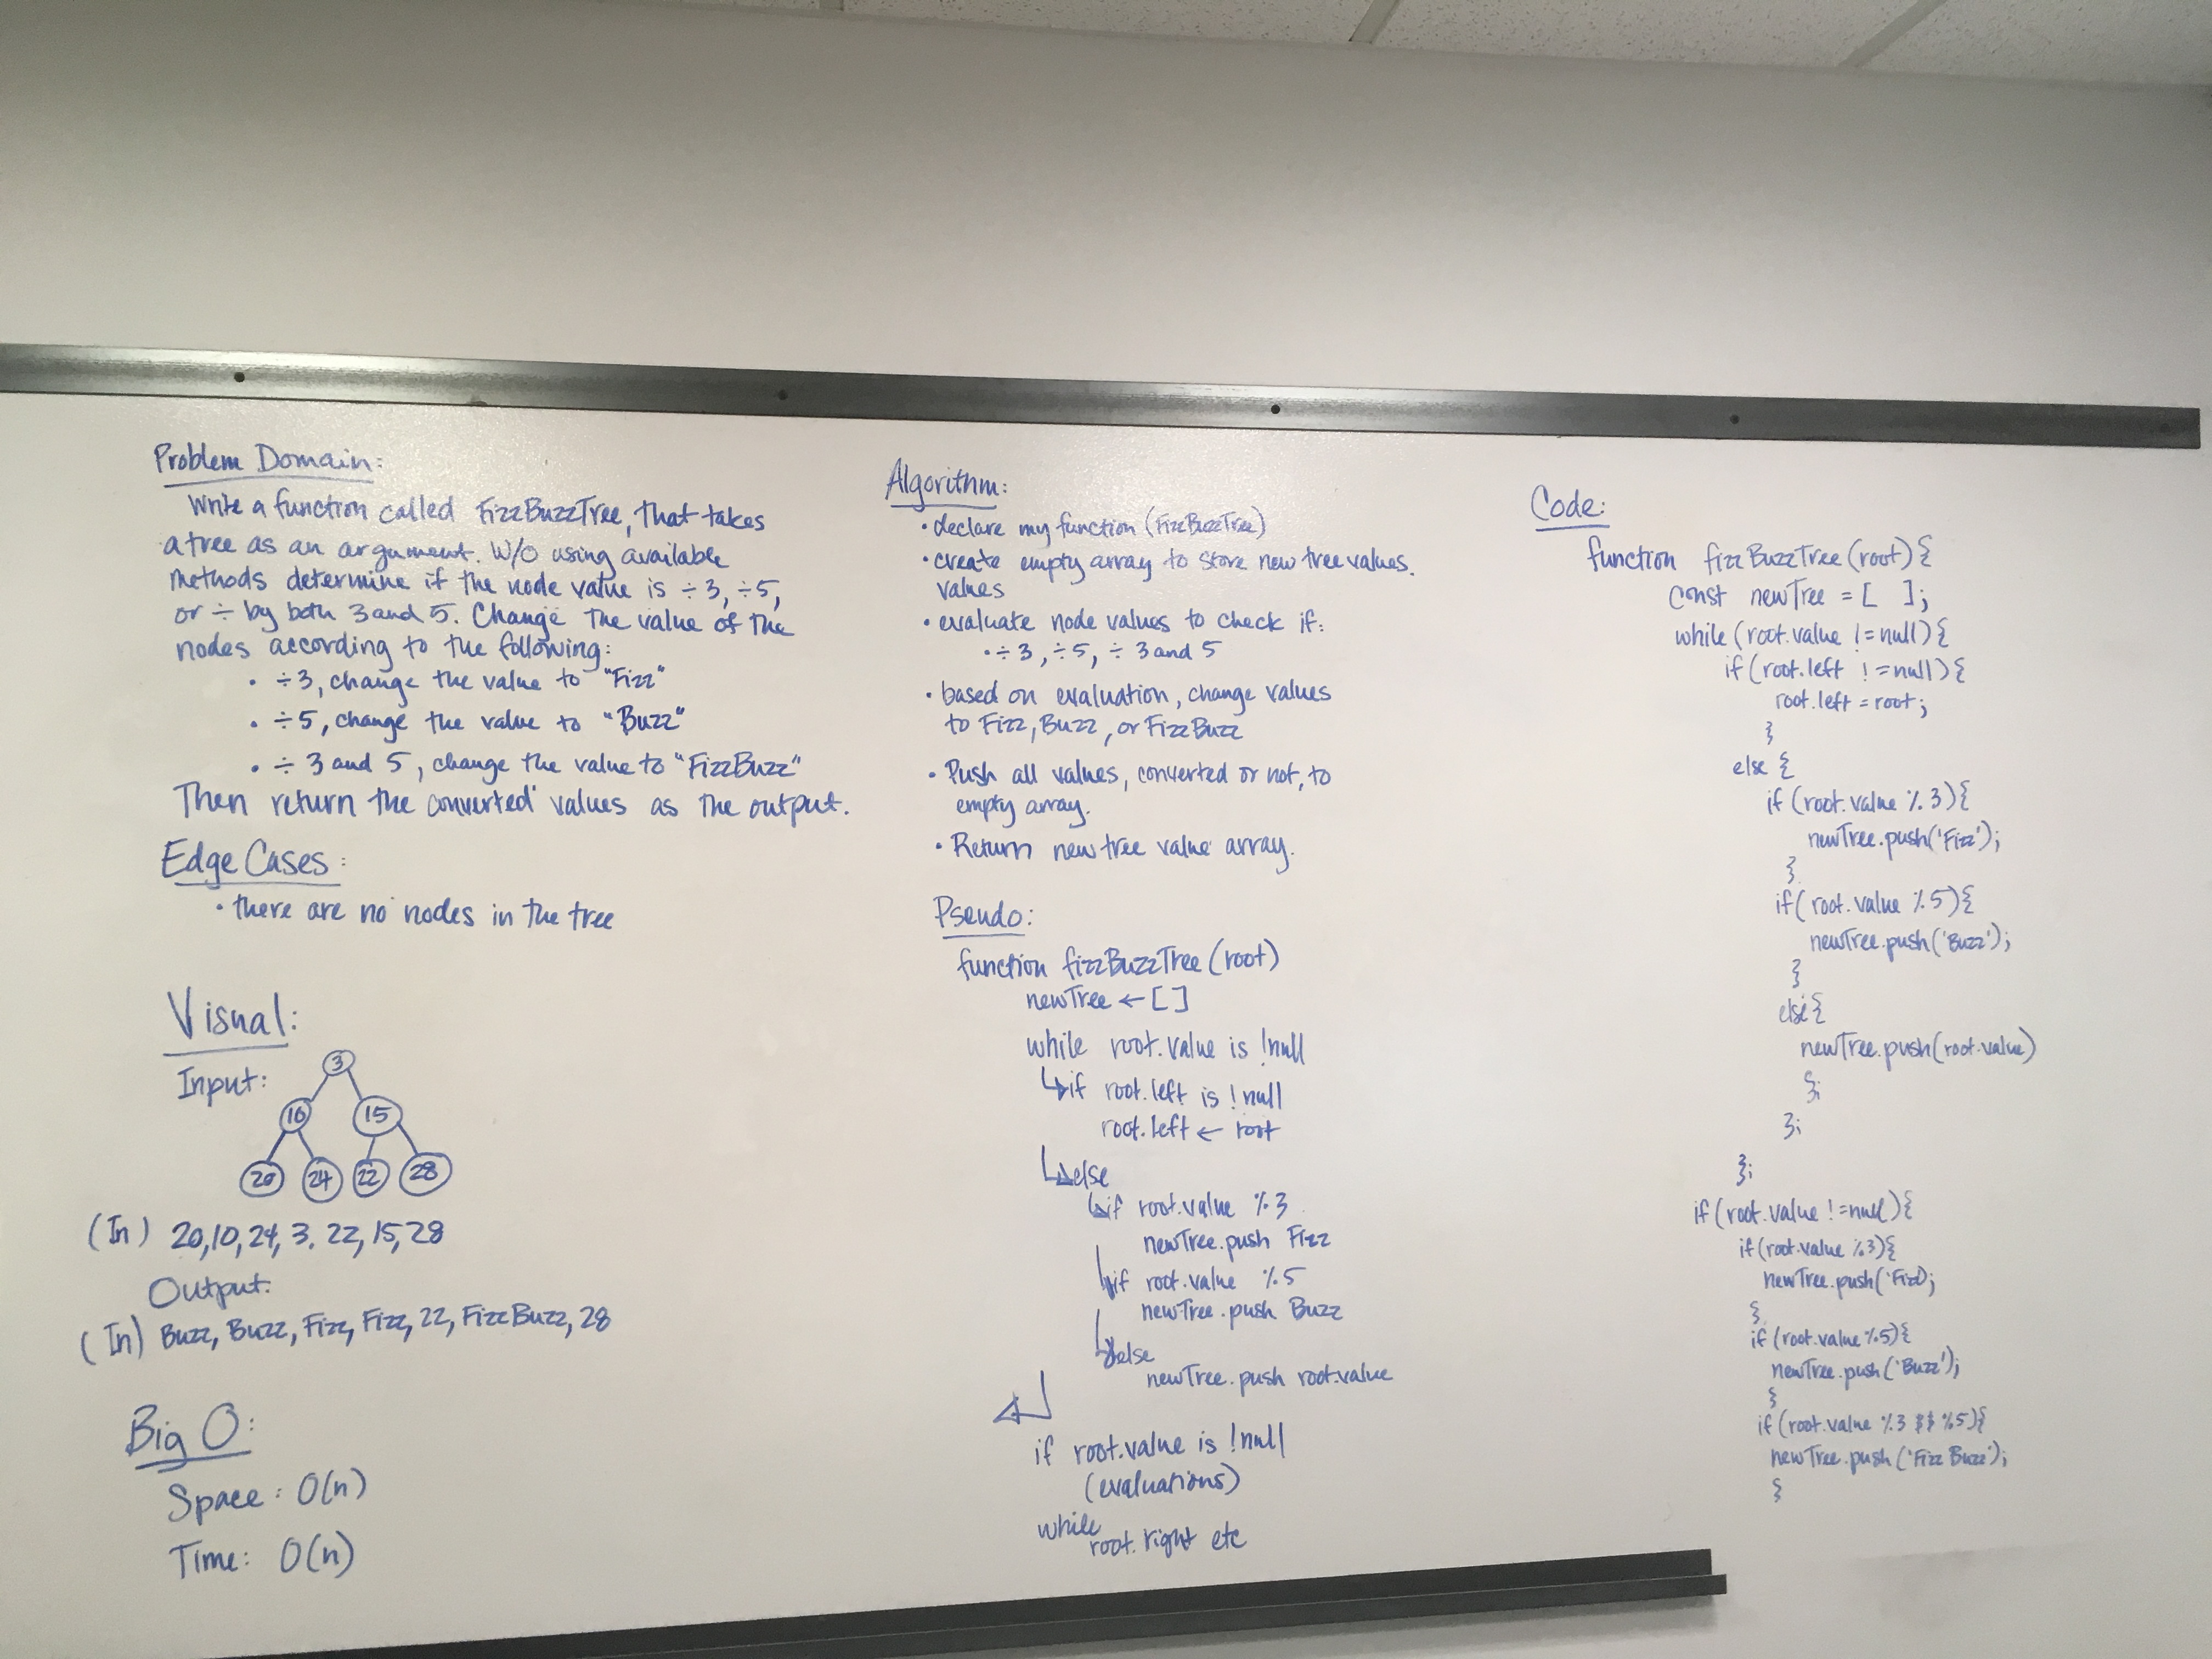 Problem Domain:
Write a function called FizzBuzzTree, that takes
a tree as an argument. W/O using available
methods determine if the node value is ÷3, ÷5,
or ÷ by both 3 and 5. Change the value of the
nodes according to the following:
• ÷3, change the value to "Fizz"
• ÷5, change the value to "Buzz"
• ÷ 3 and 5, change the value to "FizzBuzz"
Then return the converted values as the output.
Edge Cases:
• there are no nodes in the tree
Visual:
Input:
3
10 15
20 24 22 28
(In) 20,10,24,3.22,15,28
Output:
(In) Buzz, Buzz, Fizz, Fizz, 22, FizzBuzz, 28
Big O:
Space: O(n)
Time: O(n)
Algorithm:
• declare my function (FizzBuzzTree)
• create empty array to store new tree values.
values
• evaluate node values to check if:
• ÷3, ÷5, ÷ 3 and 5
• based on evaluation, change values
to Fizz, Buzz, or FizzBuzz
• Push all values, converted or not, to
empty array.
• Return new tree value array.
Pseudo:
function fizzBuzzTree(root)
newTree ← []
while root.value is !null
if root.left is !null
root.left ← root
else
if root.value %3
newTree.push Fizz
if root.value %5
newTree.push Buzz
else
newTree.push root.value
if root.value is !null
(evaluations)
while root.right etc
Code:
function fizzBuzzTree(root){
const newTree = [ ];
while (root.value !=null){
if (root.left !=null){
root.left = root;
}
else {
if (root.value % 3){
newTree.push('Fizz');
}
if( root.value %5){
newTree.push('Buzz');
}
else{
newTree.push(root.value)
};
};
};
if (root.value !=null){
if (root.value %3){
newTree.push('Fizz);
}
if (root.value %5){
newTree.push('Buzz');
}
if (root.value %3 && %5){
newTree.push('Fizz Buzz');
}